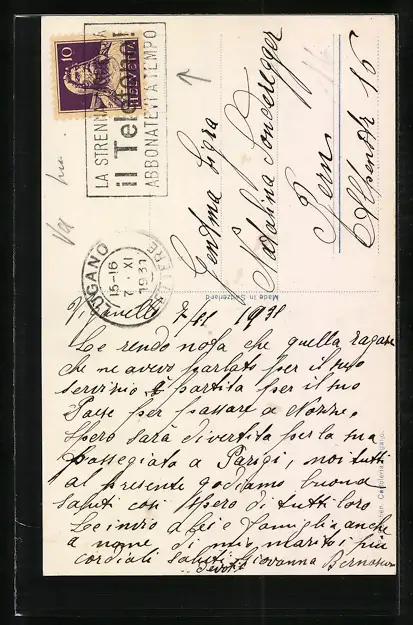 10
HELVETIA
LA STRENNA
il Telefono!
ABBONATEVI A TEMPO
LUGANO
15-16
7. XI
1931
LETTERE
Made in Switzerland
Gentma Sigra
Natalina Sonderegger
Bern
Alpenstr 16
7/11 1931
Le rendo nota che quella ragazza
che ne avevo parlato per il suo
servizio è partita per il suo
Paese per passare a Nozze.
Spero sarà divertita per la sua
passegiata a Parigi, noi tutti
al presente godiamo buona
salute così spero di tutti loro
Le invio a lei e famiglia anche
a nome di mio marito i più
cordiali saluti Giovanna Bernascon